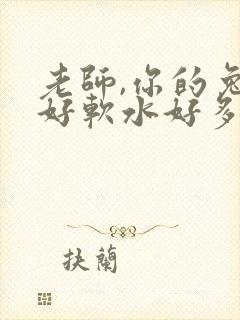 老師,你的兔
好軟水好多
抉蘭